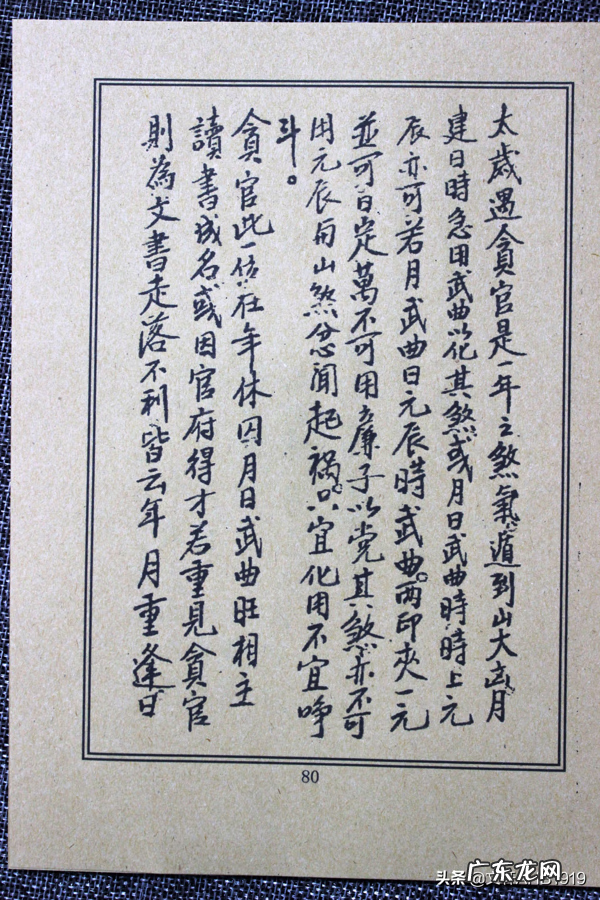 太歲遇貪官是一年之煞氣遁到山大凶月
建日時急用武曲以化其煞或月日武曲時時上元
辰亦可若月武曲日元辰時武曲。两印夾一元
並可日定萬不可用廉子以党其煞亦不可
用元辰向山煞忿间起禍。只宜化用不宜哖
斗。
貪官此一位在年休囚月日武曲旺相主
讀書成名或因官府得才若重見貪官
則為文書走落不利皆云年月重逢日
80
广东龙网
头条
919